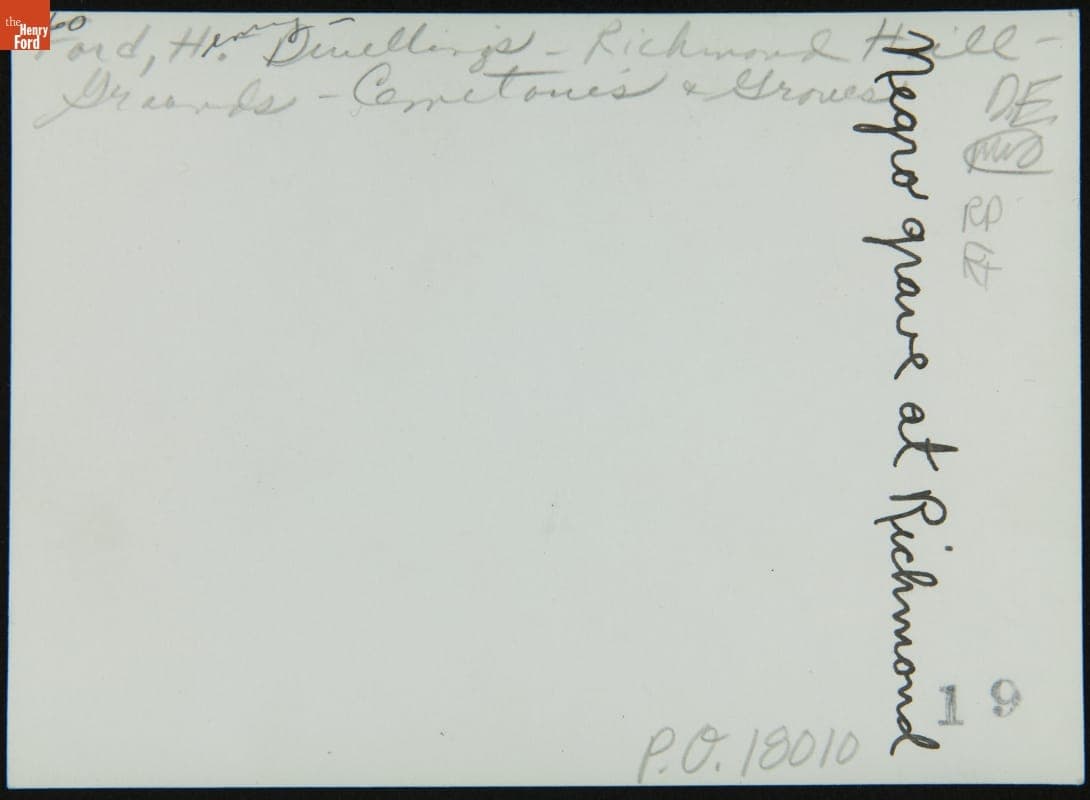 the Henry Ford
60
Ford, Henry - Dwellings - Richmond Hill -
Grounds - Cemetories & Groves
D.E.
RP
Negro grave at Richmond
19
P.O. 18010